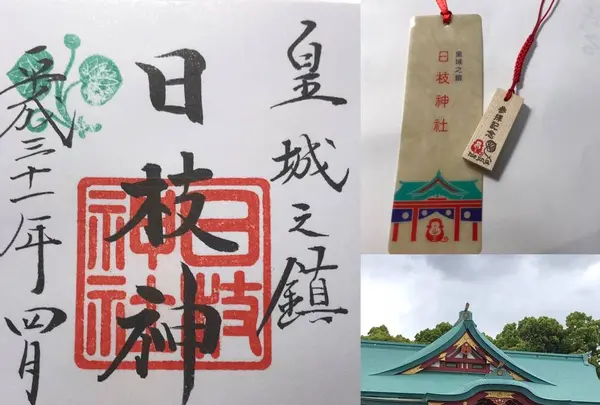 皇城之鎮
日枝神
平成三十一年四月
日枝
神社
皇城之鎮
日枝神社
参拝記念